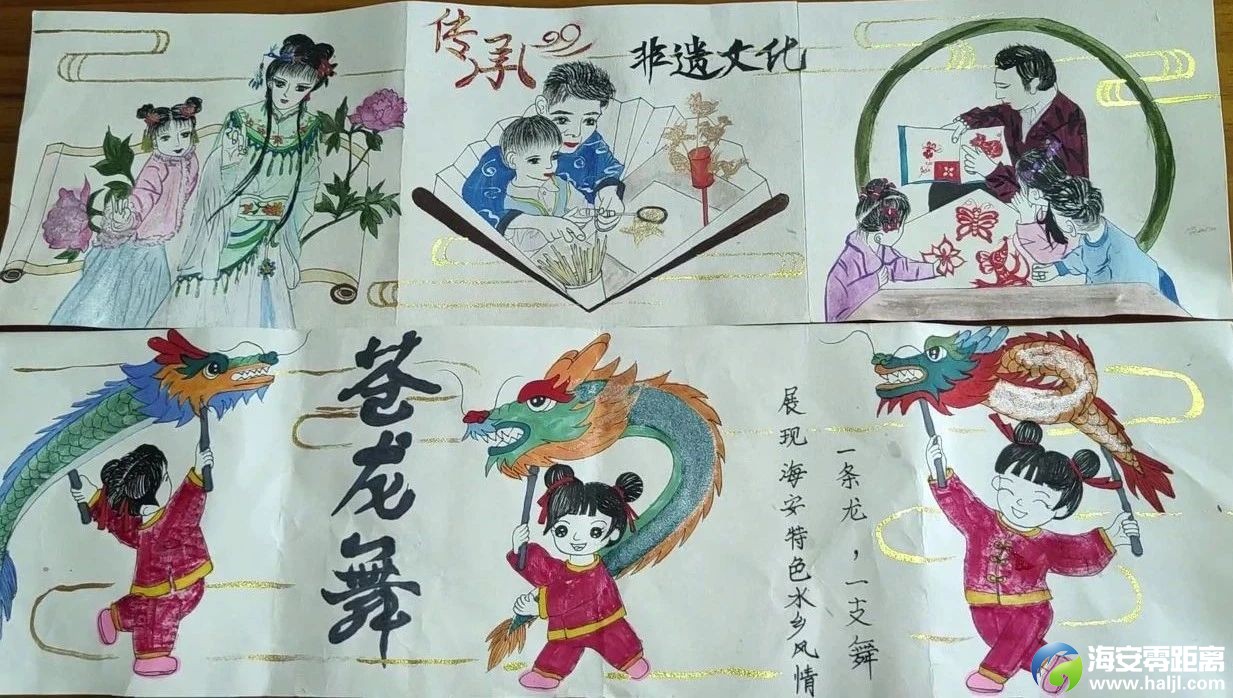 传承
非遗文化
苍龙舞
一条龙，一支舞
展现海安特色水乡风情
海安零距离
www.haljl.com